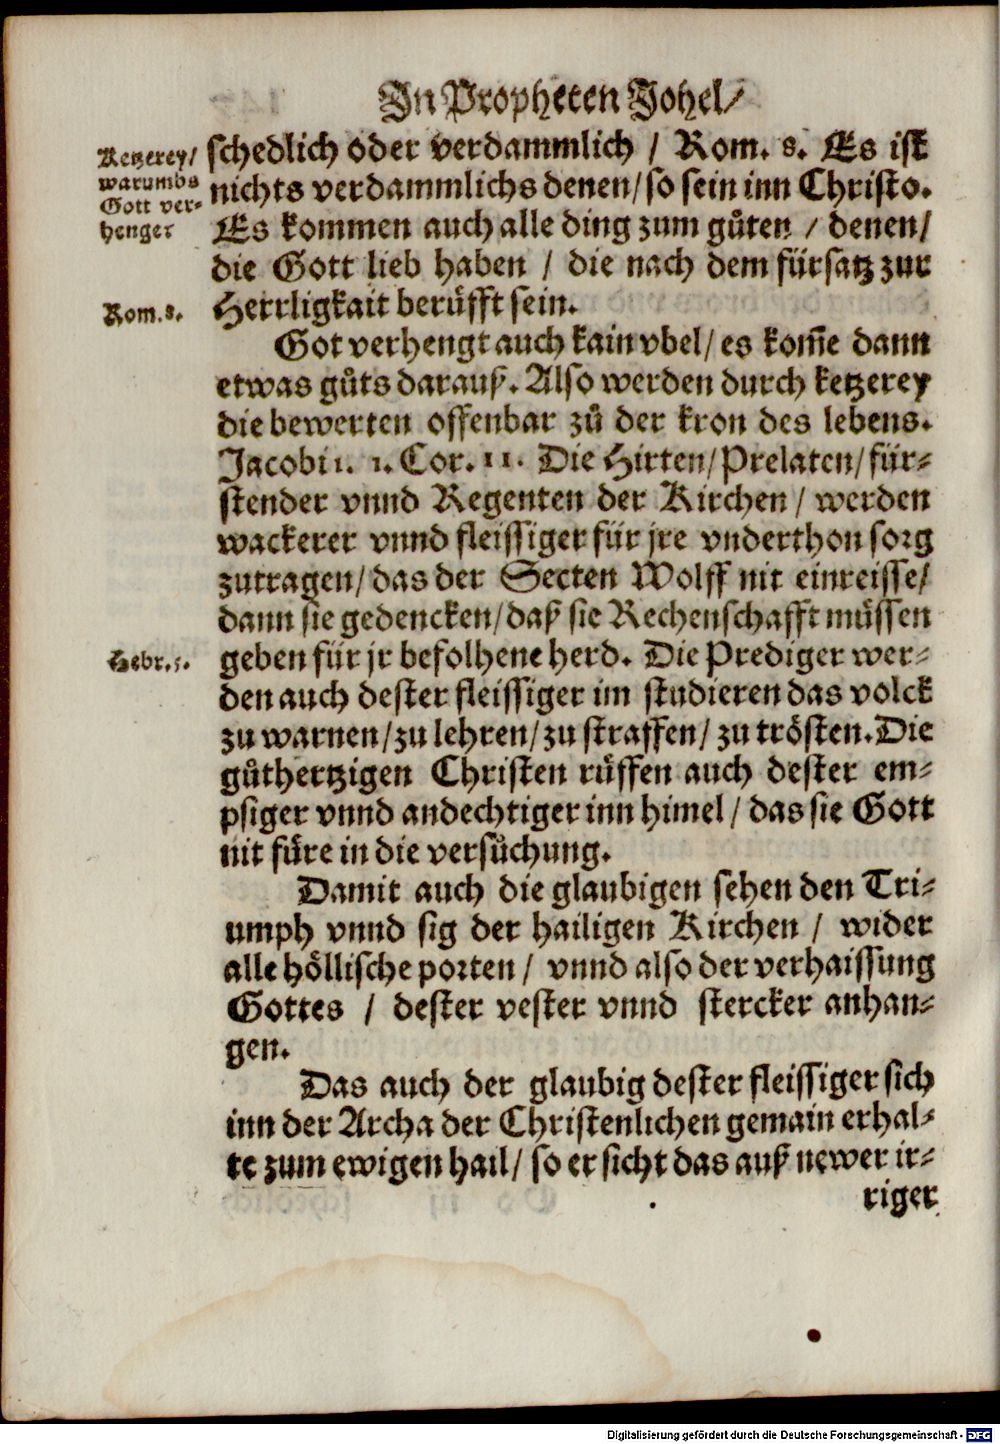 In Propheten Johel/
Ketzerey/
warumbs
Gott ver-
henget
schedlich oder verdammlich / Rom. 8. Es ist
nichts verdammlichs denen/ so sein inn Christo.
Es kommen auch alle ding zum gůten / denen/
die Gott lieb haben / die nach dem fürsatz zur
Rom. 8.
Herrligkait berüfft sein.
Got verhengt auch kain vbel/ es kom̃e dann
etwas gůts darauß. Also werden durch ketzerey
die bewerten offenbar zů der kron des lebens.
Jacobi 1. 1. Cor. 11. Die Hirten/ Prelaten/ für-
stender vnnd Regenten der Kirchen / werden
wackerer vnnd fleissiger für jre vnderthon sorg
zutragen/ das der Secten Wolff nit einreisse/
dann sie gedencken/ daß sie Rechenschafft müssen
Hebr. 5.
geben für jr befolhene herd. Die Prediger wer-
den auch dester fleissiger im studieren das volck
zu warnen/ zu lehren/ zu straffen/ zu trösten. Die
gůthertzigen Christen rüffen auch dester em-
psiger vnnd andechtiger inn himel / das sie Gott
nit füre in die versůchung.
Damit auch die glaubigen sehen den Tri-
umph vnnd sig der hailigen Kirchen / wider
alle höllische porten / vnnd also der verhaissung
Gottes / dester vester vnnd stercker anhan-
gen.
Das auch der glaubig dester fleissiger sich
inn der Archa der Christenlichen gemain erhal-
te zum ewigen hail/ so er sicht das auß newer ir-
riger
Digitalisierung gefördert durch die Deutsche Forschungsgemeinschaft - DFG